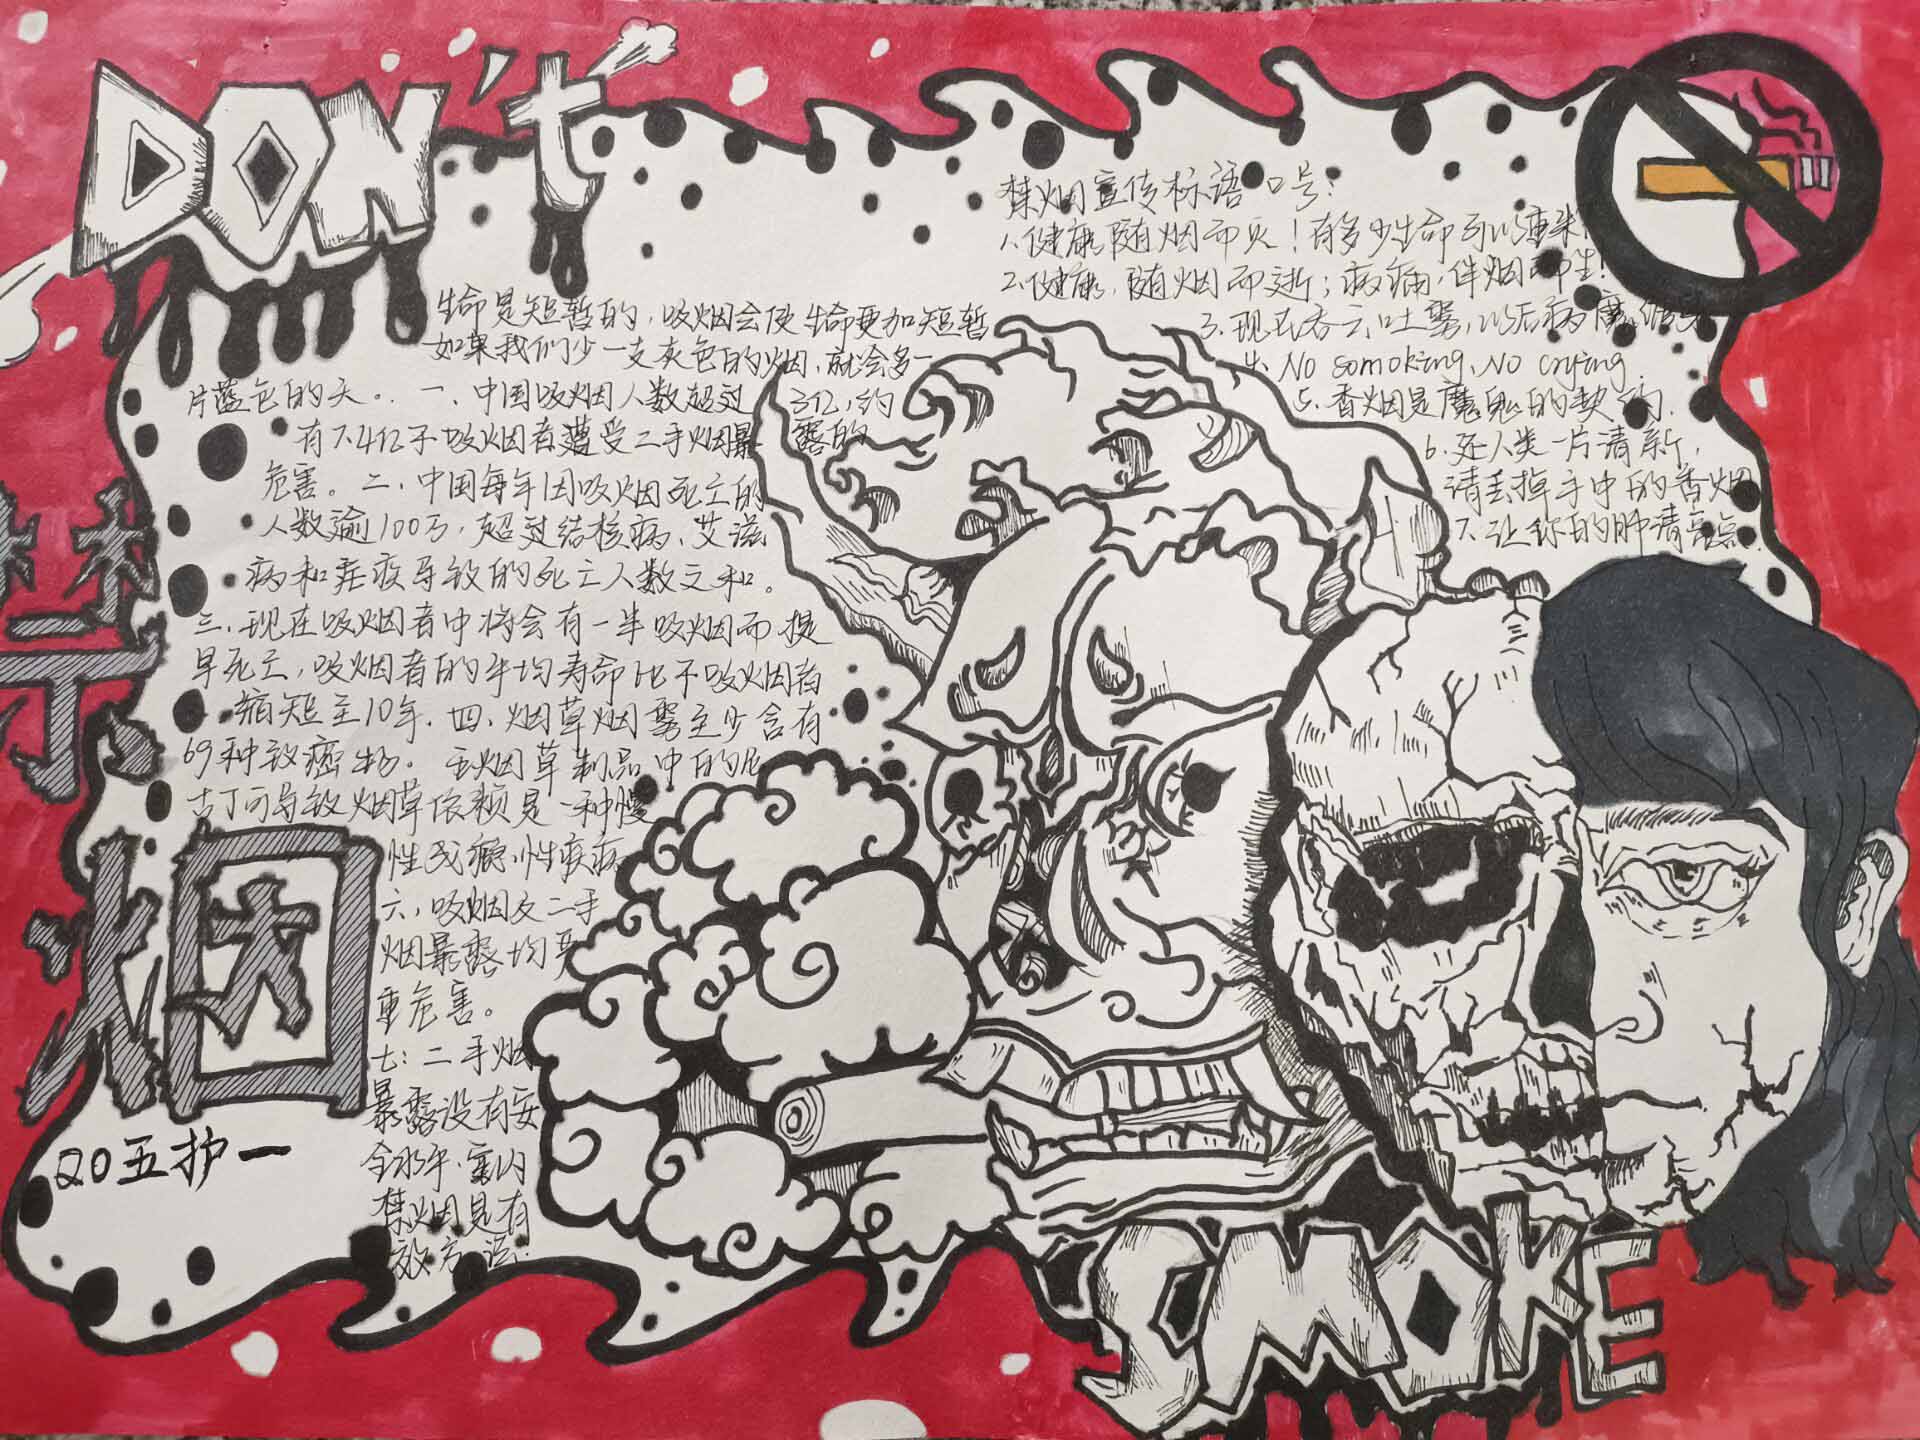 DON't
生命是短暂的，吸烟会使生命更加短暂
如果我们少一支灰色的烟，就会多一
片蓝色的天。一、中国吸烟人数超过3亿，约
有7.4亿不吸烟者遭受二手烟暴露的
危害。二、中国每年因吸烟死亡的
人数逾100万，超过结核病、艾滋
病和疟疾导致的死亡人数之和。
三、现在吸烟者中将会有一半吸烟而提
早死亡，吸烟者的平均寿命比不吸烟者
缩短至10年.四、烟草烟雾至少含有
69种致癌物。五烟草制品中的尼
古丁可导致烟草依赖是一种慢
性成瘾性疾病
六，吸烟及二手
烟暴露均严
重危害。
七：二手烟
暴露没有安
全水平.室内
禁烟是有
效方法.
禁烟宣传标语口号：
1.健康随烟而灭！有多少生命可以重来
2.健康，随烟而逝；病痛，伴烟而生！
3.现在吞云吐雾，以后病魔缠身
4. No somoking, No crying.
5.香烟是魔鬼的契约.
6.还人类一片清新，
请丢掉手中的香烟
7.让你的肺清亮点.
禁
烟
20五护一
SMOKE